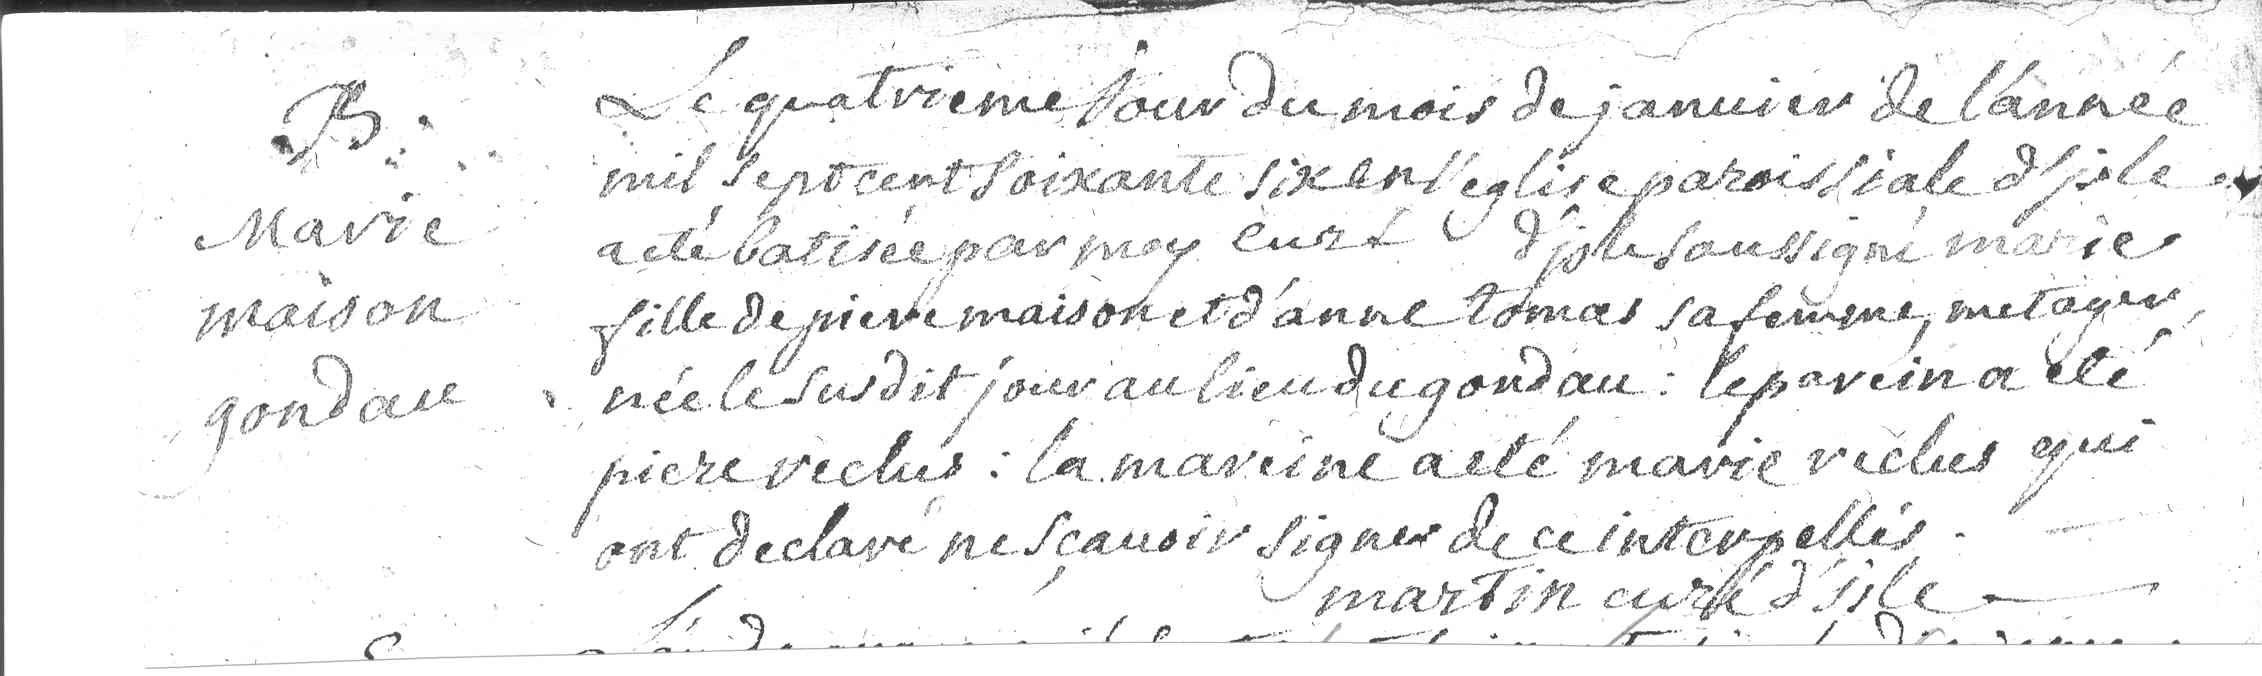 B.
Marie
maison
gondau
Le quatrieme Jour du mois de januier de l'année
mil sept cent soixante six en l'eglise paroissiale d'jsle
a eté batisée par moy curé d'jsle soussigné marie
fille de piere maison et d'anne tomas sa femme, metayer,
née le susdit jour au lieu du gondau : le parein a eté
piere reclus : la mareine a eté marie reclus qui
ont declaré ne sçauoir signer de ce interpellés.
martin curé d'isle